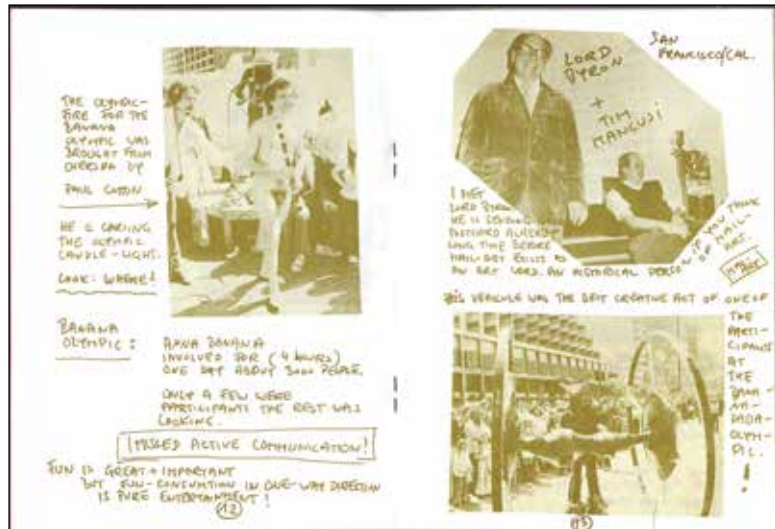 THE OLYMPIC-
FIRE FOR THE
BANANA
OLYMPIC WAS
BROUGHT FROM
BY
PAUL COTTON
HE IS CARING
THE OLYMPIC
CANDLE-LIGHT.
LOOK: WHERE!
BANANA
OLYMPIC:
ANNA BANANA
INVOLVED FOR (4 HOURS)
ONE DAY ABOUT 3000 PEOPLE.
ONLY A FEW WERE
PARTICIPANTS THE REST WAS
LOOKING.
I MISSED ACTIVE COMMUNICATION!
FUN IS GREAT + IMPORTANT
BUT FUN-CONSUMTION IN ONE-WAY DIRECTION
IS PURE ENTERTAINMENT!
12
SAN
FRANCISCO/CAL.
LORD
BYRON
+ TIM
MANCUSI
I MET
LORD BYRON
HE IS SENDING
POSTCARD ALREADY
LONG TIME BEFORE
MAIL-ART EXISTS AS
AN ART LORD. AN HISTORICAL PERSON IF YOU THINK
OF MAIL-
ART.
THIS VEHICULE WAS THE BEST CREATIVE ACT OF ONE OF
THE
PARTI-
CIPANTS
AT
THE
BANA-
NA-
DADA-
OLYM-
PIC.
!
13